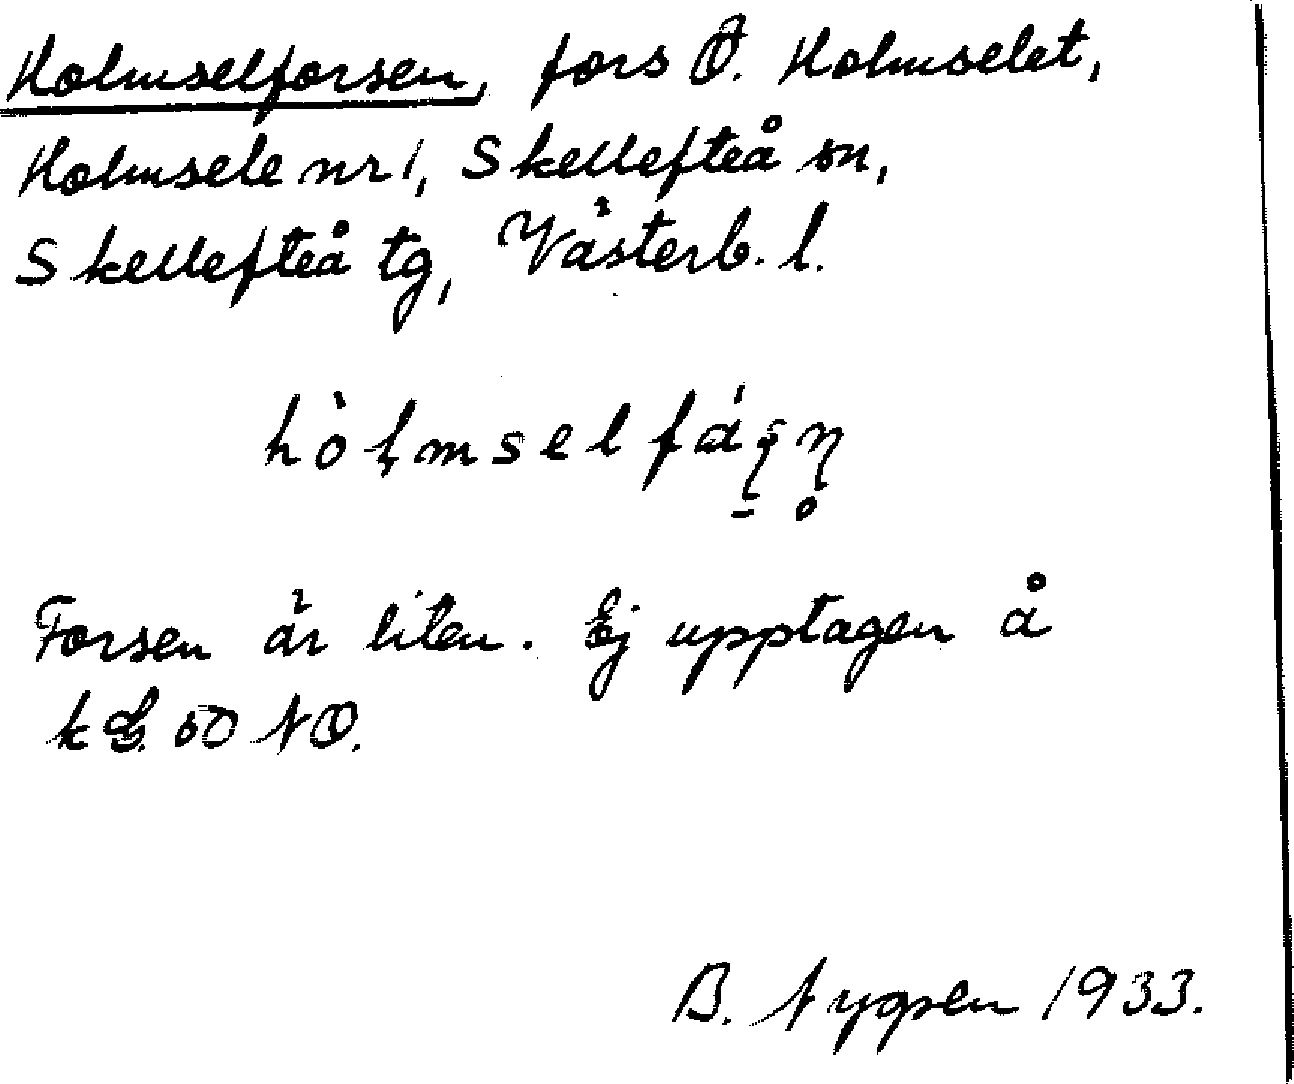 Holmselforsen, fors Ö. Holmselet,
Holmsele nr 1, Skellefteå sn,
Skellefteå tg, Västerb. l.
Forsen är liten. Ej upptagen å
k G. 50 NO.
B. 1933.